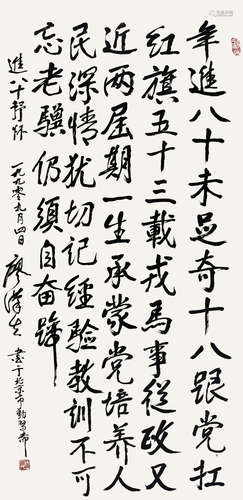 年進八十未足奇十八跟党扛
红旗五十三載戎馬事從政又
近两届期一生承蒙党培养人
民深情犹切记經驗教训不可
忘老驥仍须自奋蹄
進八十抒怀 一九九〇年九月四日 廖漢生 書于北京市